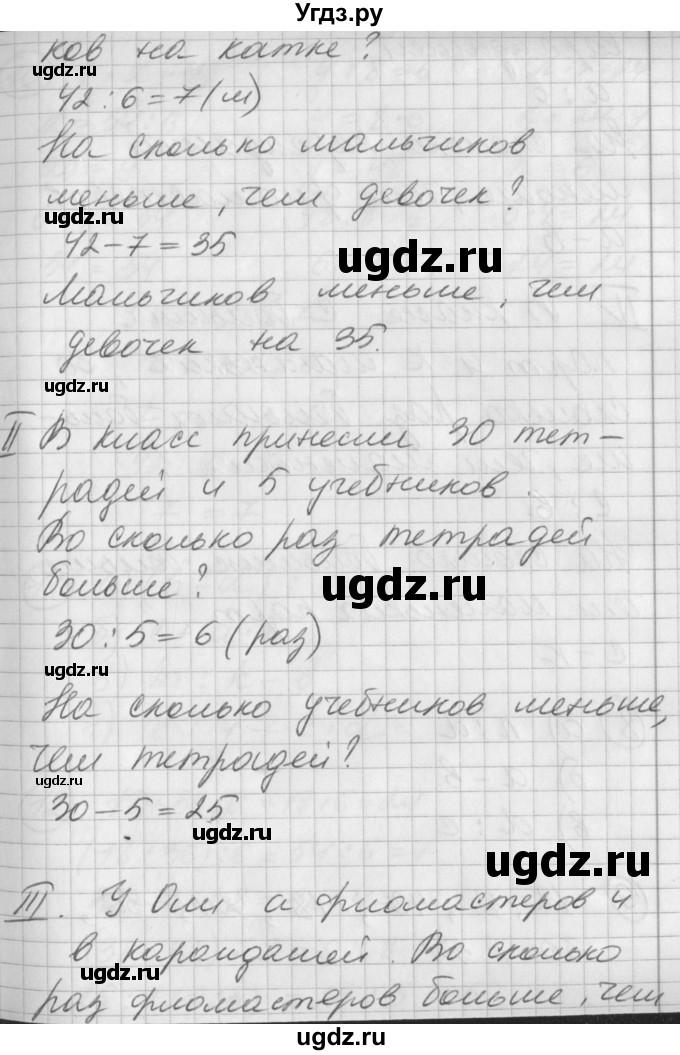 Угдз.ру
ков на катке?
ugdz.ru
42 : 6 = 7 (м)
На сколько мальчиков
меньше, чем девочек?
ugdz.ru
42 – 7 = 35
ugdz.ru
Мальчиков меньше, чем
девочек на 35.
ugdz.ru
II В класс принесли 30 тет-
радей и 5 учебников.
ugdz.ru
Во сколько раз тетрадей
больше?
ugdz.ru
ugdz.ru
30 : 5 = 6 (раз)
ugdz.ru
На сколько учебников меньше,
чем тетрадей?
ugdz.ru
30 – 5 = 25
ugdz.ru
ugdz.ru
III. У Оли а фломастеров и
в карандашей. Во сколько
ugdz.ru
раз фломастеров больше, чем
ugdz.ru
ugdz.ru